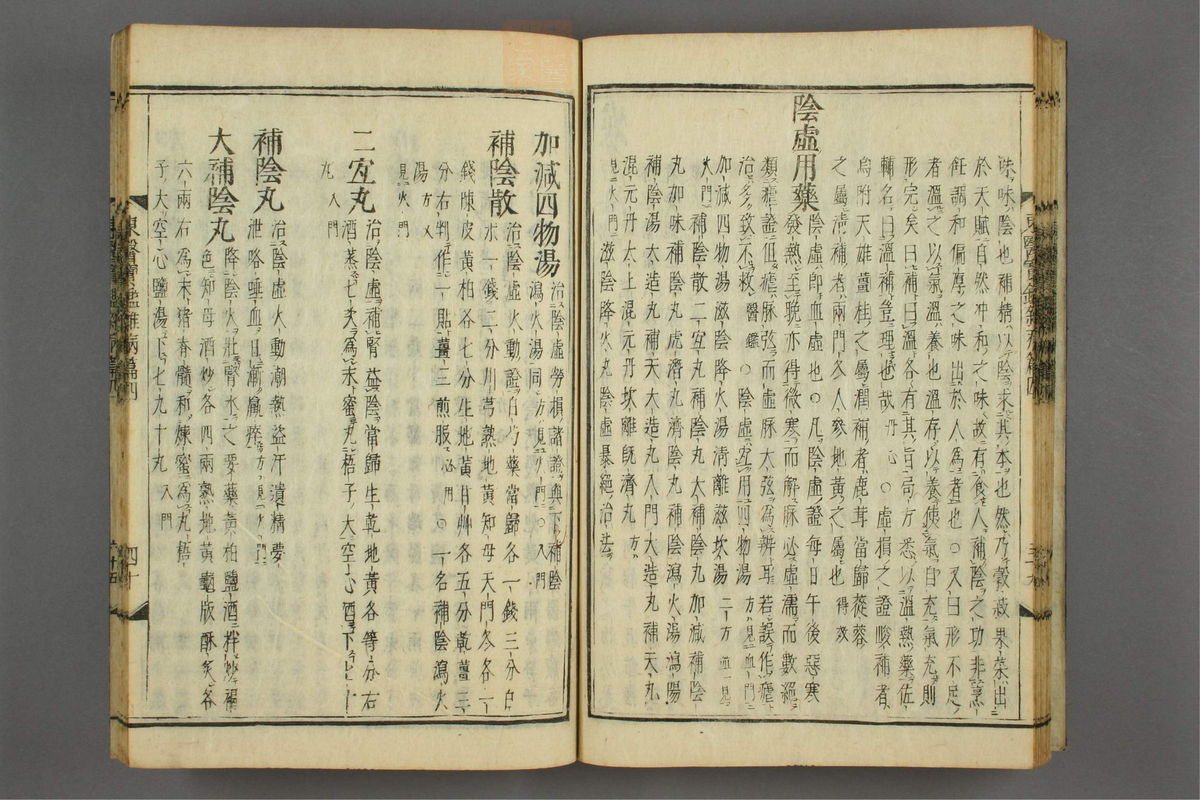 味味陰也補精以陰求其本也然乃穀菽果菜出
於天賦自然冲和之味故有食人補陰之功非烹
飪調和偏厚之味出於人為者也○又曰形不足
者溫之以氣溫養也溫存以養使氣自充氣充則
形完矣曰補曰溫各有其旨局方悉以溫熱藥佐
輔名曰溫補豈理也哉丹心○虛損之證峻補者
烏附天雄薑桂之屬潤補者鹿茸當歸蓯蓉
之屬清補者兩門各人參地黃之屬也得效
陰虛用藥
陰虛即血虛也○凡陰虛證每日午後惡寒
發熱至晚亦得微寒而解脉必虛濡而數絕
類瘧證但瘧脉弦而虛脉大弦為辨耳若誤作瘧
治多致不救醫鑑○陰虛宜用四物湯方見血門
加減四物湯滋陰降火湯清離滋坎湯二方並見
火門補陰散二宜丸補陰丸大補陰丸加減補陰
丸加味補陰丸虎潛丸濟陰丸補陰瀉火湯瀉陽
補陰湯太造丸補天大造丸入門大造丸補天丸
混元丹太上混元丹坎離既濟丸方
見火門滋陰降火丸陰虛暴絕治法
加減四物湯
治陰虛勞損諸證與下補陰
瀉火湯同方見火門○入門
補陰散
治陰虛火動證白芍藥當歸各一錢三分白
朮一錢二分川芎熟地黃知母天門冬各一
錢陳皮黃柏各七分生地黃甘艸各五分乾薑三
分右剉作一貼薑三煎服心門○一名補陰瀉火
湯方又
見火門
二宜丸
治陰虛補腎益陰當歸生乾地黃各等分右
酒蒸七次為末蜜丸梧子大空心酒下七十
丸入門
補陰丸
治陰虛火動潮熱盜汗潰精夢
泄咯唾血日漸羸瘁方見火門
大補陰丸
降陰火壯腎水之要藥黃柏鹽酒拌炒褐
色知母酒炒各四兩熟地黃龜版酥炙各
六兩右為末猪脊髓和煉蜜為丸梧
子大空心鹽湯下七九十丸入門
東醫寶鑑雜病篇四
四十